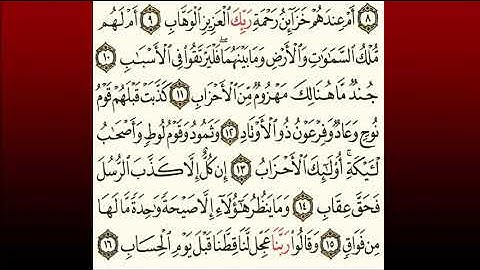 ٨ أَمْ عِندَهُمْ خَزَآئِنُ رَحْمَةِ رَبِّكَ ٱلْعَزِيزِ ٱلْوَهَّابِ ٩ أَمْ لَهُم
مُّلْكُ ٱلسَّمَٰوَٰتِ وَٱلْأَرْضِ وَمَا بَيْنَهُمَا ۖ فَلْيَرْتَقُوا۟ فِى ٱلْأَسْبَٰبِ ١٠
جُندٌ مَّا هُنَالِكَ مَهْزُومٌ مِّنَ ٱلْأَحْزَابِ ١١ كَذَّبَتْ قَبْلَهُمْ قَوْمُ
نُوحٍ وَعَادٌ وَفِرْعَوْنُ ذُو ٱلْأَوْتَادِ ١٢ وَثَمُودُ وَقَوْمُ لُوطٍ وَأَصْحَٰبُ
لْـَٔيْكَةِ ۚ أُو۟لَٰٓئِكَ ٱلْأَحْزَابُ ١٣ إِن كُلٌّ إِلَّا كَذَّبَ ٱلرُّسُلَ
فَحَقَّ عِقَابِ ١٤ وَمَا يَنظُرُ هَٰٓؤُلَآءِ إِلَّا صَيْحَةً وَٰحِدَةً مَّا لَهَا
مِن فَوَاقٍ ١٥ وَقَالُوا۟ رَبَّنَا عَجِّل لَّنَا قِطَّنَا قَبْلَ يَوْمِ ٱلْحِسَابِ ١٦